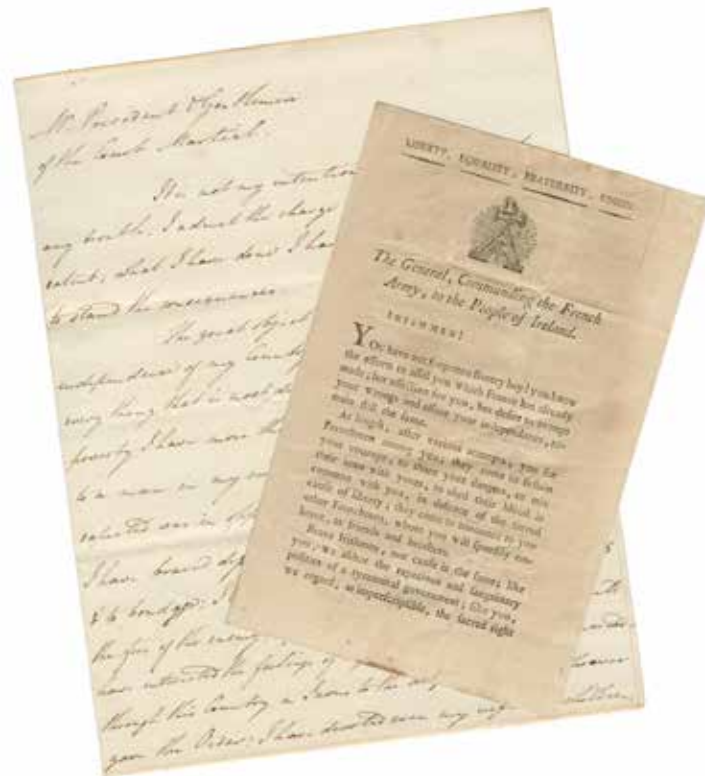 Mr. President & Gentlemen
of the Court Martial.
It is not my intention
any trouble. I admit the charge
extent; what I have done I have
to stand the consequences
The great object
independence of my Country
every thing that is most
poverty I have more th
to a man in my
I have braved
& to bondage: I
the fire of the enemy
now interested the feelings of
through this Country in Irons to
gave the Order. I have devoted even my
LIBERTY, EQUALITY, FRATERNITY, UNION.
The General, Commanding the French
Army, to the People of Ireland.
IRISHMEN!
YOU have not forgotten Bantry bay! you know
the efforts to assist you which France has already
made; her affection for you, her desire to avenge
your wrongs and assure your independence, re-
main still the same.
At length, after various attempts, you see
Frenchmen among you; they come to sustain
your courage, to share your dangers, to mix
their arms with yours, to shed their blood in
common with you, in defence of the sacred
cause of liberty; they come to announce to you
other Frenchmen, whom you will speedily em-
brace, as friends and brothers.
Brave Irishmen, our cause is the same; like
you, we abhor the rapacious and sanguinary
politics of a tyrannical government; like you,
we regard, as imperscriptible, the sacred right